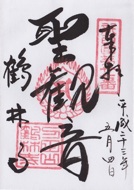 奉拝
平成二十三年
五月四日
聖観音
鶴林寺